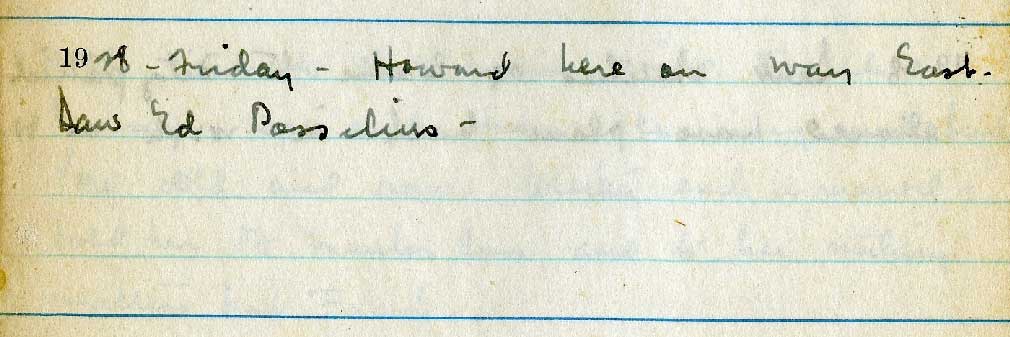 1928 - Friday - Howard here on way East.
Saw Ed Posselius -